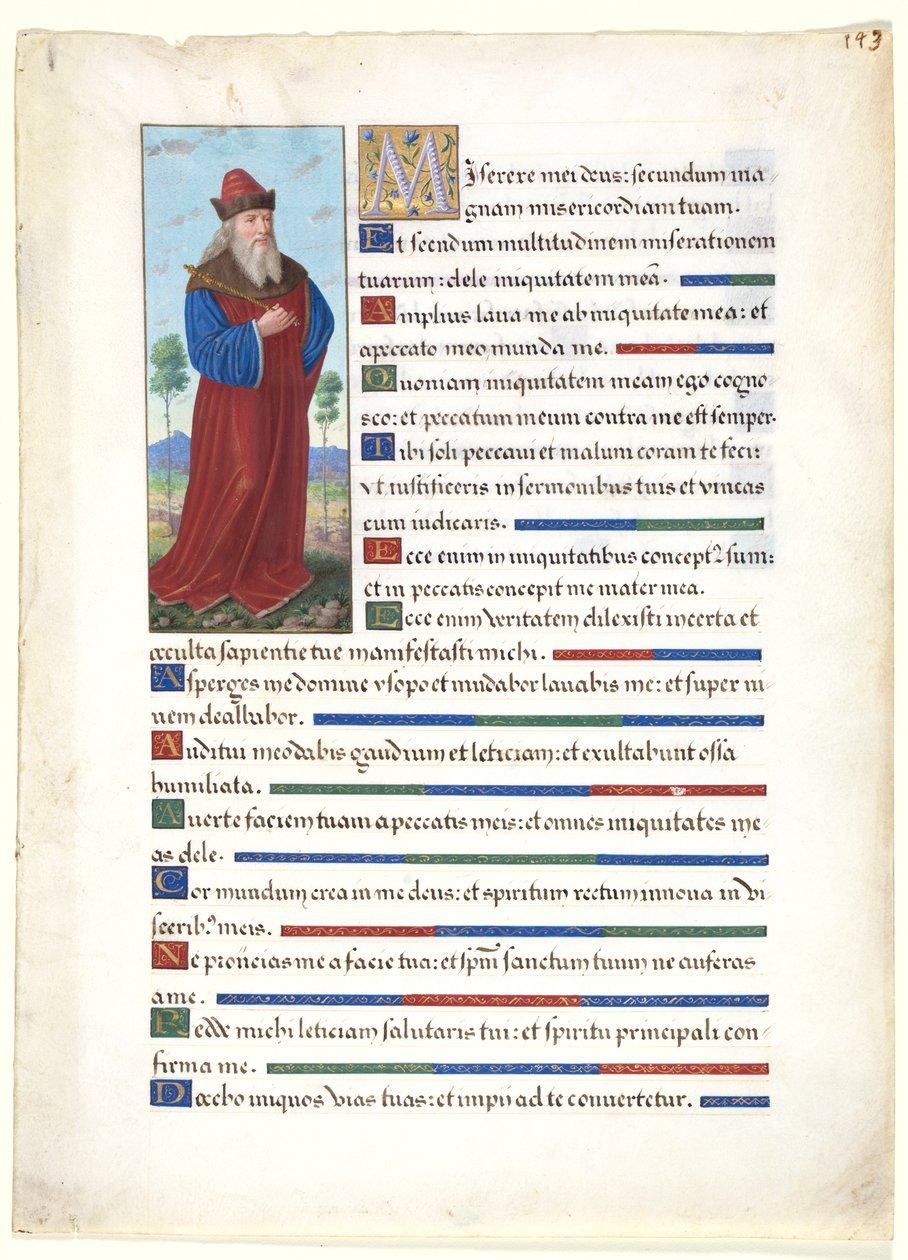 143
Miserere mei deus: secundum ma
gnam misericordiam tuam.
Et secundum multitudinem miserationem
tuarum: dele iniquitatem meā.
Amplius laua me ab iniquitate mea: et
apeccato meo munda me.
Quoniam iniquitatem meam ego cogno
sco: et peccatum meum contra me est semper.
Tibi soli peccaui et malum coram te feci:
vt iustificeris in sermonibus tuis et vincas
cum iudicaris.
Ecce enim in iniquitatibus conceptꝰ sum:
et in peccatis concepit me mater mea.
Ecce enim veritatem dilexisti incerta et
occulta sapientie tue manifestasti michi.
Asperges me domine ysopo et mūdabor lauabis me: et super ni-
uem dealbabor.
Auditui meo dabis gaudium et leticiam: et exultabunt ossa
humiliata.
Auerte faciem tuam a peccatis meis: et omnes iniquitates me-
as dele.
Cor mundum crea in me deus: et spiritum rectum innoua in vi-
sceribꝰ meis.
Ne proiicias me a facie tua: et spm̄ sanctum tuum ne auferas
a me.
Redde michi leticiam salutaris tui: et spiritu principali con-
firma me.
Docebo iniquos vias tuas: et impii ad te conuertetur.